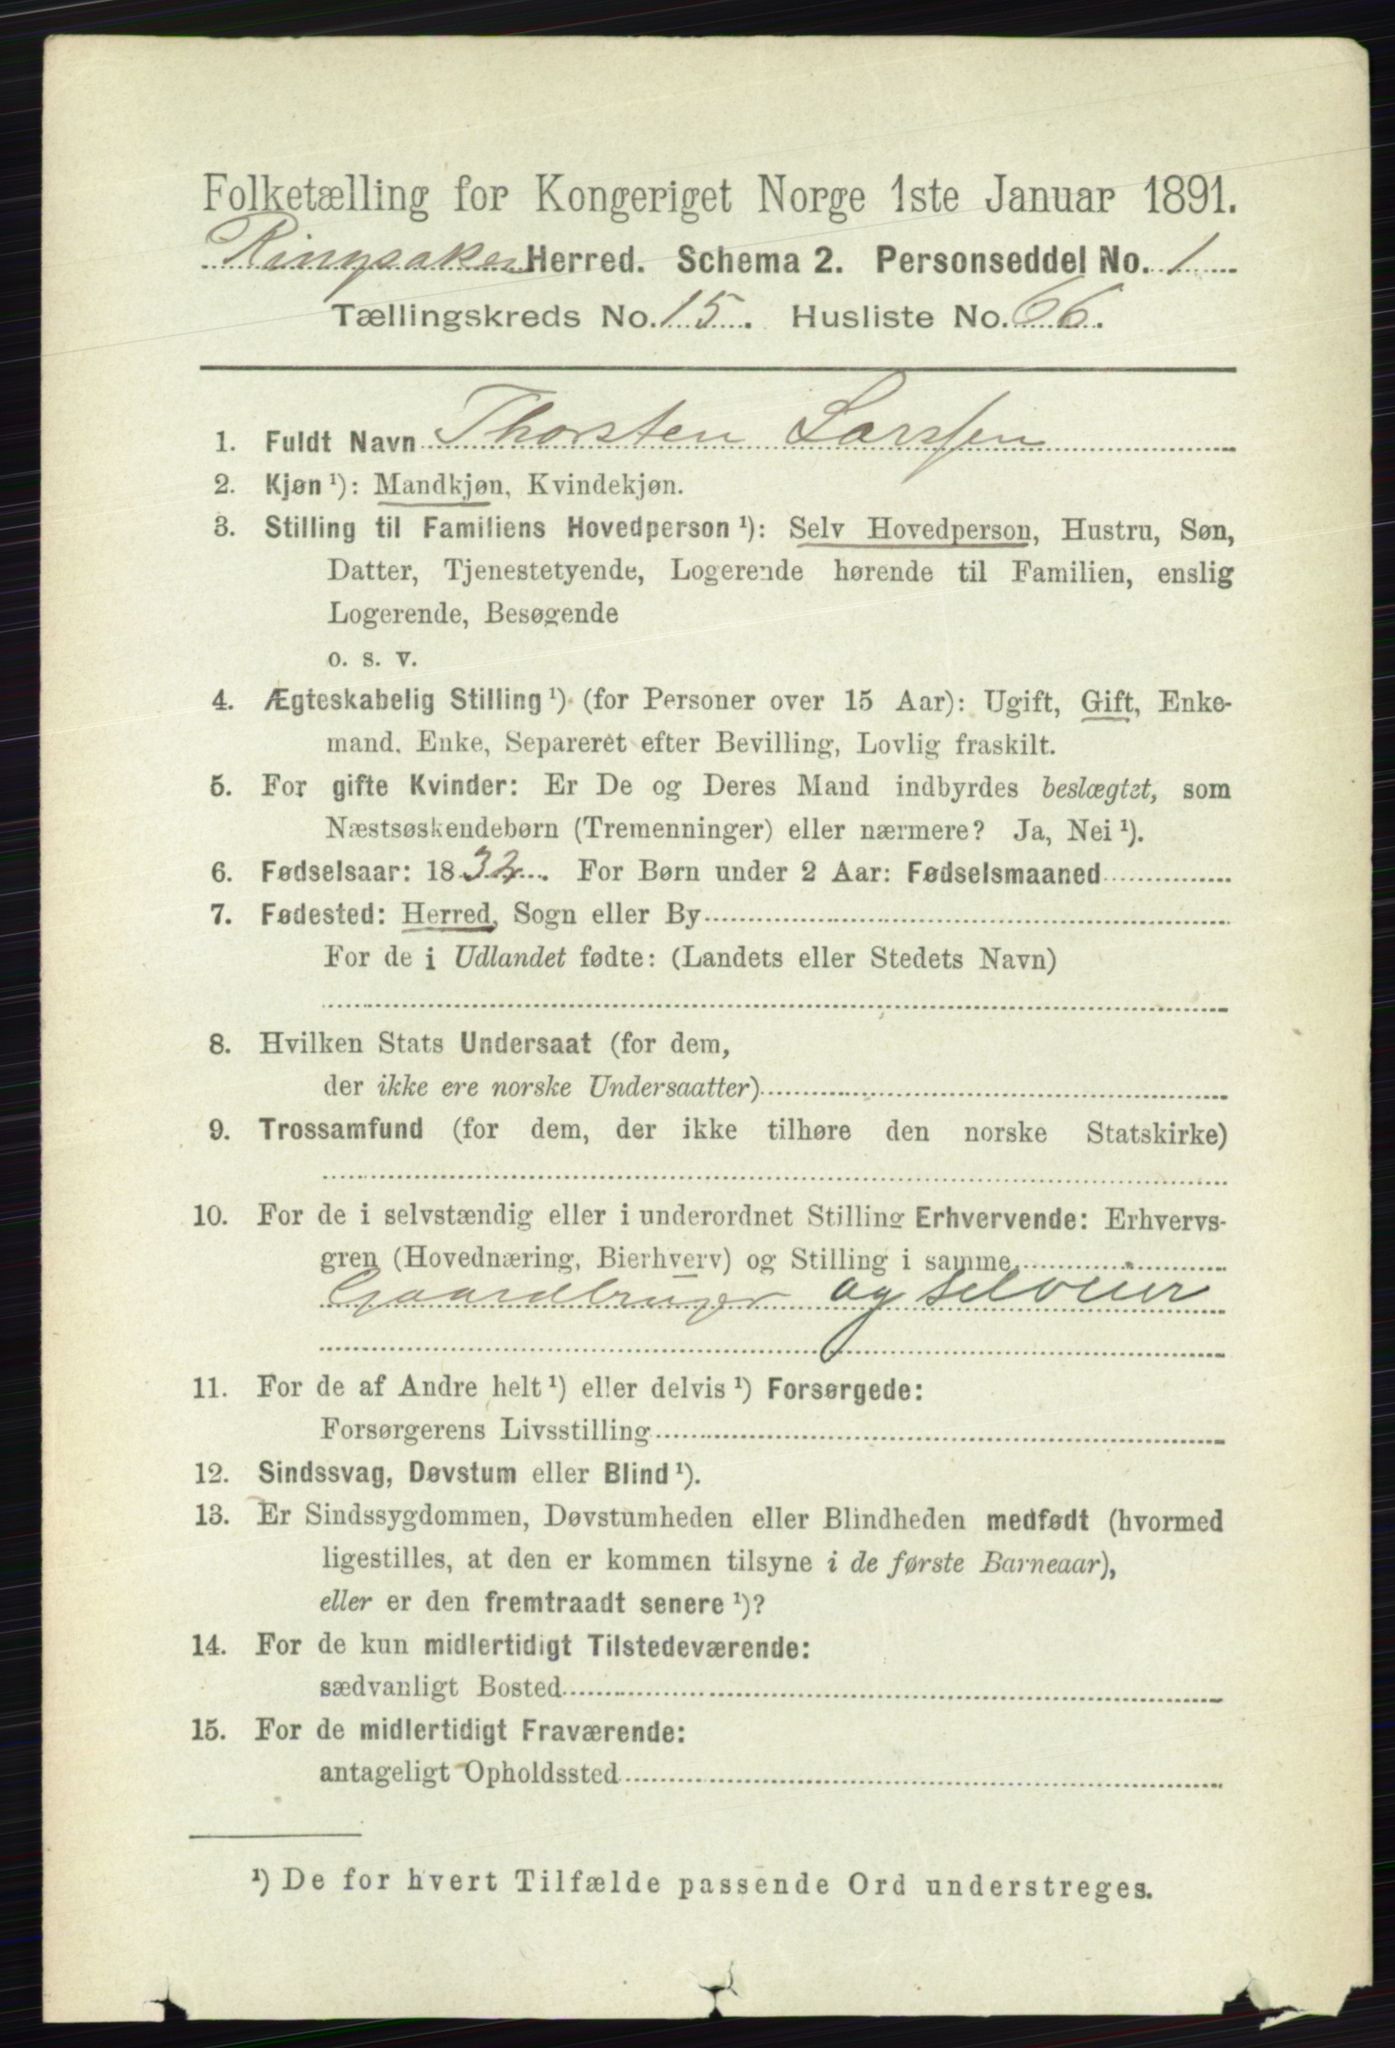 Folketælling for Kongeriget Norge 1ste Januar 1891.
Ringsaker Herred. Schema 2. Personseddel No. 1
Tællingskreds No. 15. Husliste No. 66.
1. Fuldt Navn Thorsten Larssen
2. Kjøn ¹): Mandkjøn, Kvindekjøn.
3. Stilling til Familiens Hovedperson ¹): Selv Hovedperson, Hustru, Søn,
Datter, Tjenestetyende, Logerende hørende til Familien, enslig
Logerende, Besøgende
o. s. v.
4. Ægteskabelig Stilling ¹) (for Personer over 15 Aar): Ugift, Gift, Enke-
mand, Enke, Separeret efter Bevilling, Lovlig fraskilt.
5. For gifte Kvinder: Er De og Deres Mand indbyrdes beslægtet, som
Næstsøskendebørn (Tremenninger) eller nærmere? Ja, Nei ¹).
6. Fødselsaar: 1832. For Børn under 2 Aar: Fødselsmaaned
7. Fødested: Herred, Sogn eller By
For de i Udlandet fødte: (Landets eller Stedets Navn)
8. Hvilken Stats Undersaat (for dem,
der ikke ere norske Undersaatter)
9. Trossamfund (for dem, der ikke tilhøre den norske Statskirke)
10. For de i selvstændig eller i underordnet Stilling Erhvervende: Erhvervs-
gren (Hovednæring, Bierhverv) og Stilling i samme
Gaardbruger og selveier
11. For de af Andre helt ¹) eller delvis ¹) Forsørgede:
Forsørgerens Livsstilling
12. Sindssvag, Døvstum eller Blind ¹).
13. Er Sindssygdommen, Døvstumheden eller Blindheden medfødt (hvormed
ligestilles, at den er kommen tilsyne i de første Barneaar),
eller er den fremtraadt senere ¹)?
14. For de kun midlertidigt Tilstedeværende:
sædvanligt Bosted
15. For de midlertidigt Fraværende:
antageligt Opholdssted
¹) De for hvert Tilfælde passende Ord understreges.